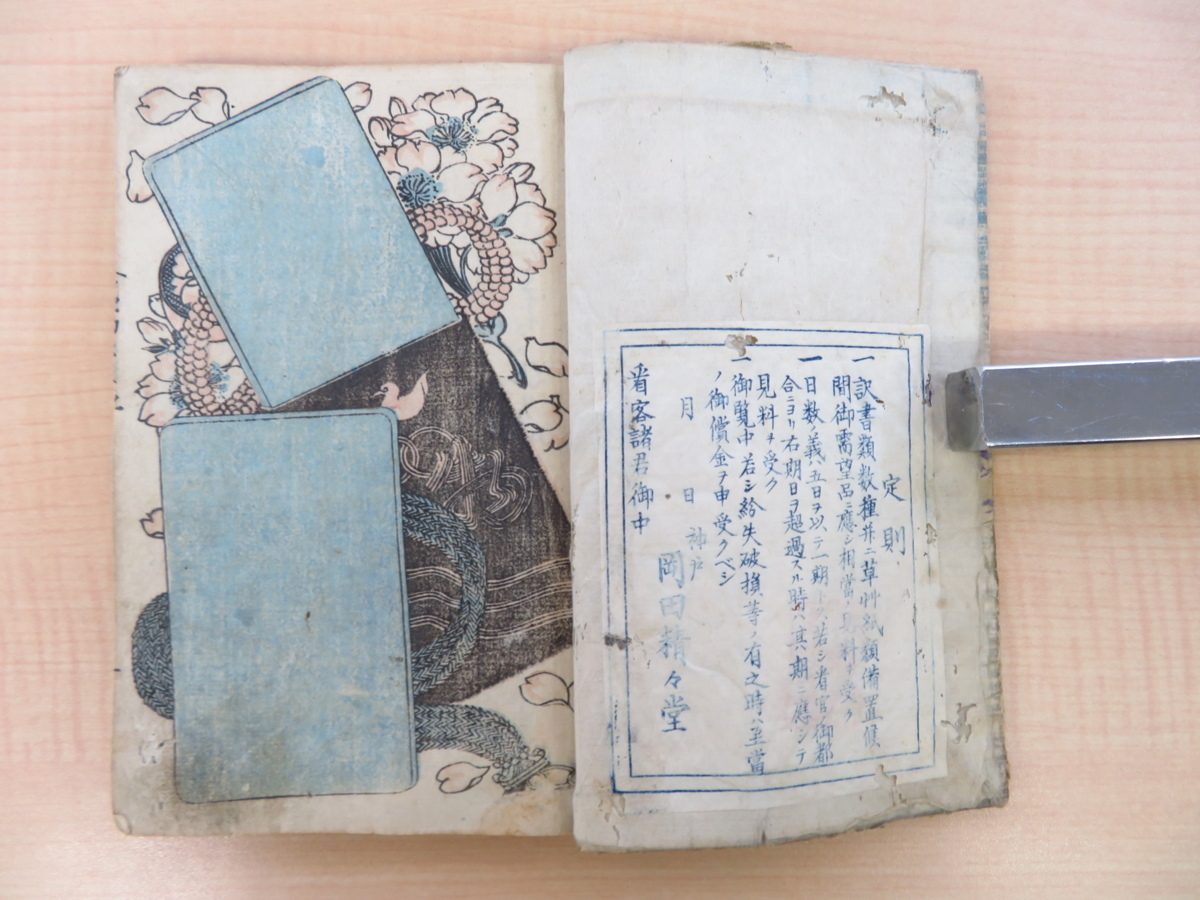 定則
一訳書類数種并ニ草艸紙類備置候
間御需望品ニ應シ相當ノ見料ヲ受ク
一日数義ハ五日ヲ以テ一期トス若シ看官ノ御都
合ニヨリ右期日ヲ超過スル時ハ其期ニ應シテ
見料ヲ受ク
一御覧中若シ給失破損等ノ有之時ハ至當
ノ御償金ヲ申受クベシ
月 日 神戸
岡田精々堂
看客諸君御中